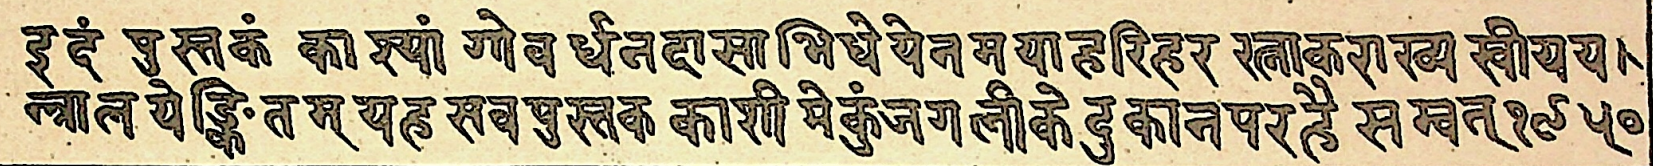 इदं पुस्तकं काश्यां गोवर्धनदासाभिधेयेन मया हरिहर रत्नाकराख्य स्वीयय।
न्त्रालयेङ्कितम् यह सब पुस्तक काशी मे कुंजगली के दुकान पर है सम्वत् १९५०